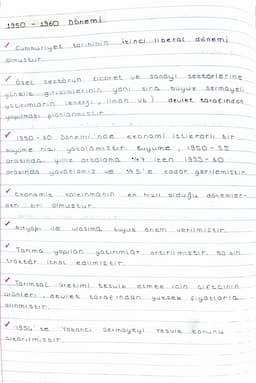 1950 - 1960 Dönemi
✓ Cumhuriyet tarihinin ikinci liberal dönemi
olmuştur.
✓ Özel sektörün ticaret ve sanayi sektörlerine
yönelik girişimlerinin yanı sıra büyük sermayeli
yatırımların (enerji, liman vb.) devlet tarafından
yapılması planlanmıştır.
✓ 1950 - 60 Dönemi'nde ekonomi istikrarlı bir
büyüme hızı yakalamıştır. Büyüme, 1950 - 55
arasında yıllık ortalama iken 1955 - 60
arasında yavaşlamış ve kadar gerilemiştir.
✓ Ekonomik kalkınmanın en hızlı olduğu dönemler-
den biri olmuştur.
✓ Altyapı ile ulaşıma büyük önem verilmiştir.
✓ Tarıma yapılan yatırımlar artırılmıştır. bin
traktör ithal edilmiştir.
✓ Tarımsal üretimi teşvik etmek için çiftçinin
ürünleri, devlet tarafından yüksek fiyatlarla
alınmıştır.
✓ Yabancı Sermayeyi Teşvik Kanunu
çıkarılmıştır.